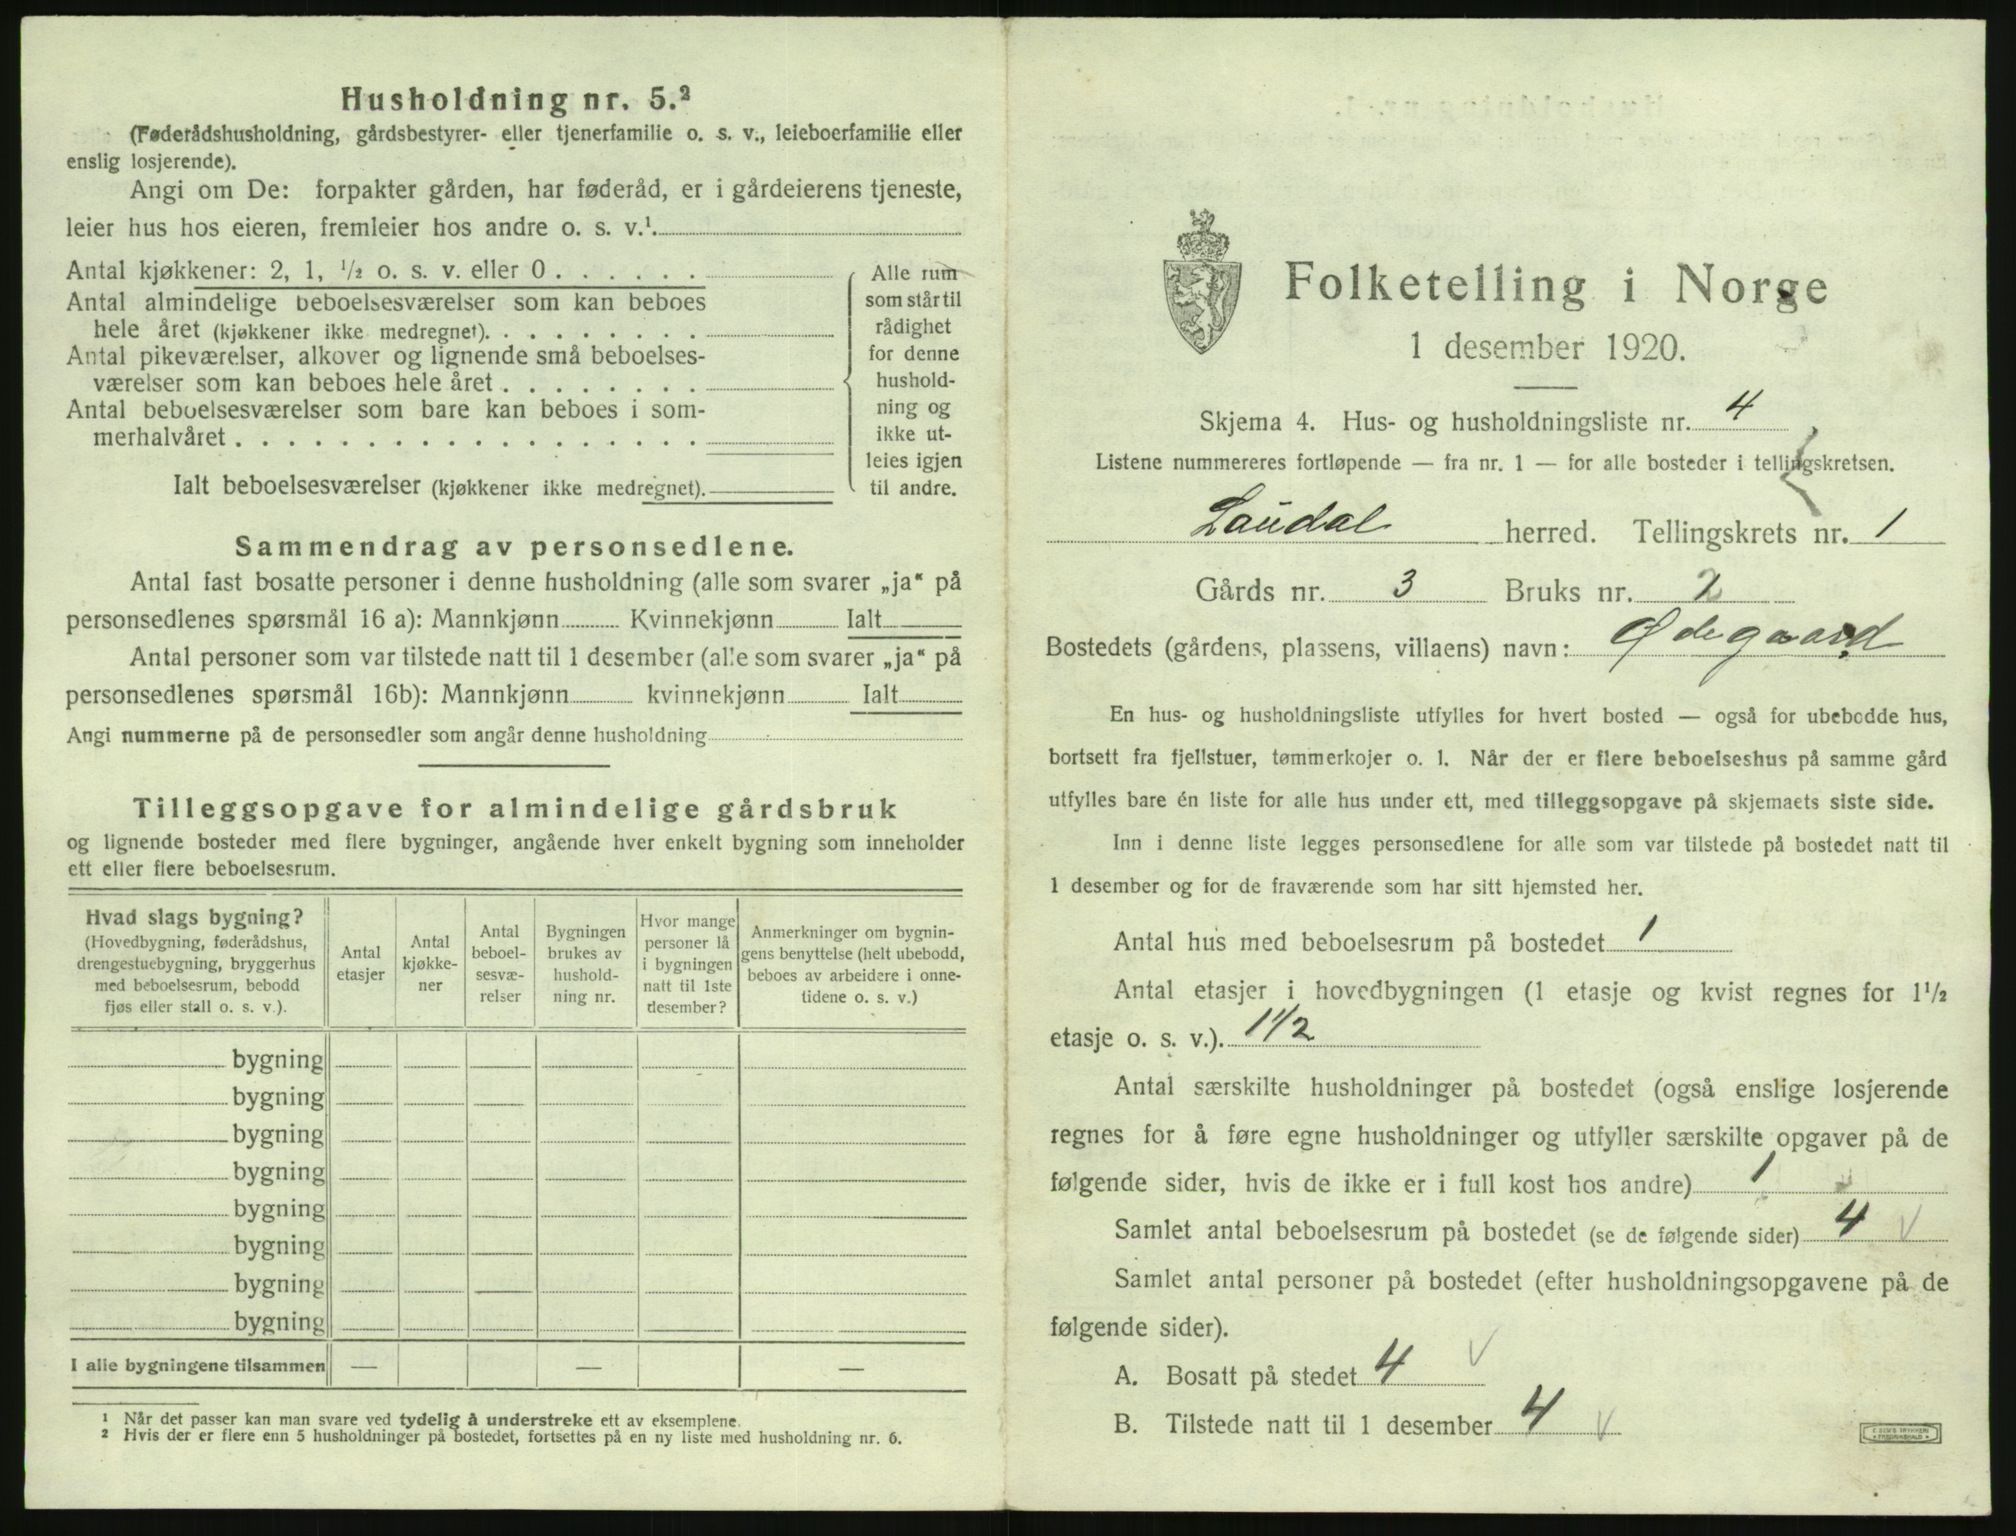 Husholdning nr. 5.²
(Føderådshusholdning, gårdsbestyrer- eller tjenerfamilie o. s. v., leieboerfamilie eller
enslig losjerende).
Angi om De: forpakter gården, har føderåd, er i gårdeierens tjeneste,
leier hus hos eieren, fremleier hos andre o. s. v.¹.
Antal kjøkkener: 2, 1, ½ o. s. v. eller 0 . . . . . .
Antal almindelige beboelsesværelser som kan beboes
hele året (kjøkkener ikke medregnet). . . . . . . . .
Antal pikeværelser, alkover og lignende små beboelses-
værelser som kan beboes hele året . . . . . . . .
Antal beboelsesværelser som bare kan beboes i som-
merhalvåret . . . . . . . . . . . . . . . . . .
Ialt beboelsesværelser (kjøkkener ikke medregnet).
Alle rum
som står til
rådighet
for denne
hushold-
ning og
ikke ut-
leies igjen
til andre.
Sammendrag av personsedlene.
Antal fast bosatte personer i denne husholdning (alle som svarer „ja“ på
personsedlenes spørsmål 16 a): Mannkjønn Kvinnekjønn Ialt
Antal personer som var tilstede natt til 1 desember (alle som svarer „ja“ på
personsedlenes spørsmål 16b): Mannkjønn kvinnekjønn Ialt
Angi nummerne på de personsedler som angår denne husholdning
Tilleggsopgave for almindelige gårdsbruk
og lignende bosteder med flere bygninger, angående hver enkelt bygning som inneholder
ett eller flere beboelsesrum.
Hvad slags bygning?
(Hovedbygning, føderådshus,
drengestuebygning, bryggerhus
med beboelsesrum, bebodd
fjøs eller stall o. s. v.).
Antal
etasjer
Antal
kjøkke-
ner
Antal
beboel-
sesvæ-
relser
Bygningen
brukes av
hushold-
ning nr.
Hvor mange
personer lå
i bygningen
natt til 1ste
desember?
Anmerkninger om bygnin-
gens benyttelse (helt ubebodd,
beboes av arbeidere i onne-
tidene o. s. v.)
bygning
bygning
bygning
bygning
bygning
bygning
bygning
bygning
I alle bygningene tilsammen — — —
¹ Når det passer kan man svare ved tydelig å understreke ett av eksemplene.
² Hvis der er flere enn 5 husholdninger på bostedet, fortsettes på en ny liste med husholdning nr. 6.
Folketelling i Norge
1 desember 1920.
Skjema 4. Hus- og husholdningsliste nr. 4
Listene nummereres fortløpende — fra nr. 1 — for alle bosteder i tellingskretsen.
Laudal herred. Tellingskrets nr. 1
Gårds nr. 3 Bruks nr. 2
Bostedets (gårdens, plassens, villaens) navn: Ødegaard
En hus- og husholdningsliste utfylles for hvert bosted — også for ubebodde hus,
bortsett fra fjellstuer, tømmerkojer o. l. Når der er flere beboelseshus på samme gård
utfylles bare én liste for alle hus under ett, med tilleggsopgave på skjemaets siste side.
Inn i denne liste legges personsedlene for alle som var tilstede på bostedet natt til
1 desember og for de fraværende som har sitt hjemsted her.
Antal hus med beboelsesrum på bostedet 1
Antal etasjer i hovedbygningen (1 etasje og kvist regnes for 1½
etasje o. s. v.). 1½
Antal særskilte husholdninger på bostedet (også enslige losjerende
regnes for å føre egne husholdninger og utfyller særskilte opgaver på de
følgende sider, hvis de ikke er i full kost hos andre) 1
Samlet antal beboelsesrum på bostedet (se de følgende sider) 4 V
Samlet antal personer på bostedet (efter husholdningsopgavene på de
følgende sider).
A. Bosatt på stedet 4 V
B. Tilstede natt til 1 desember 4 V